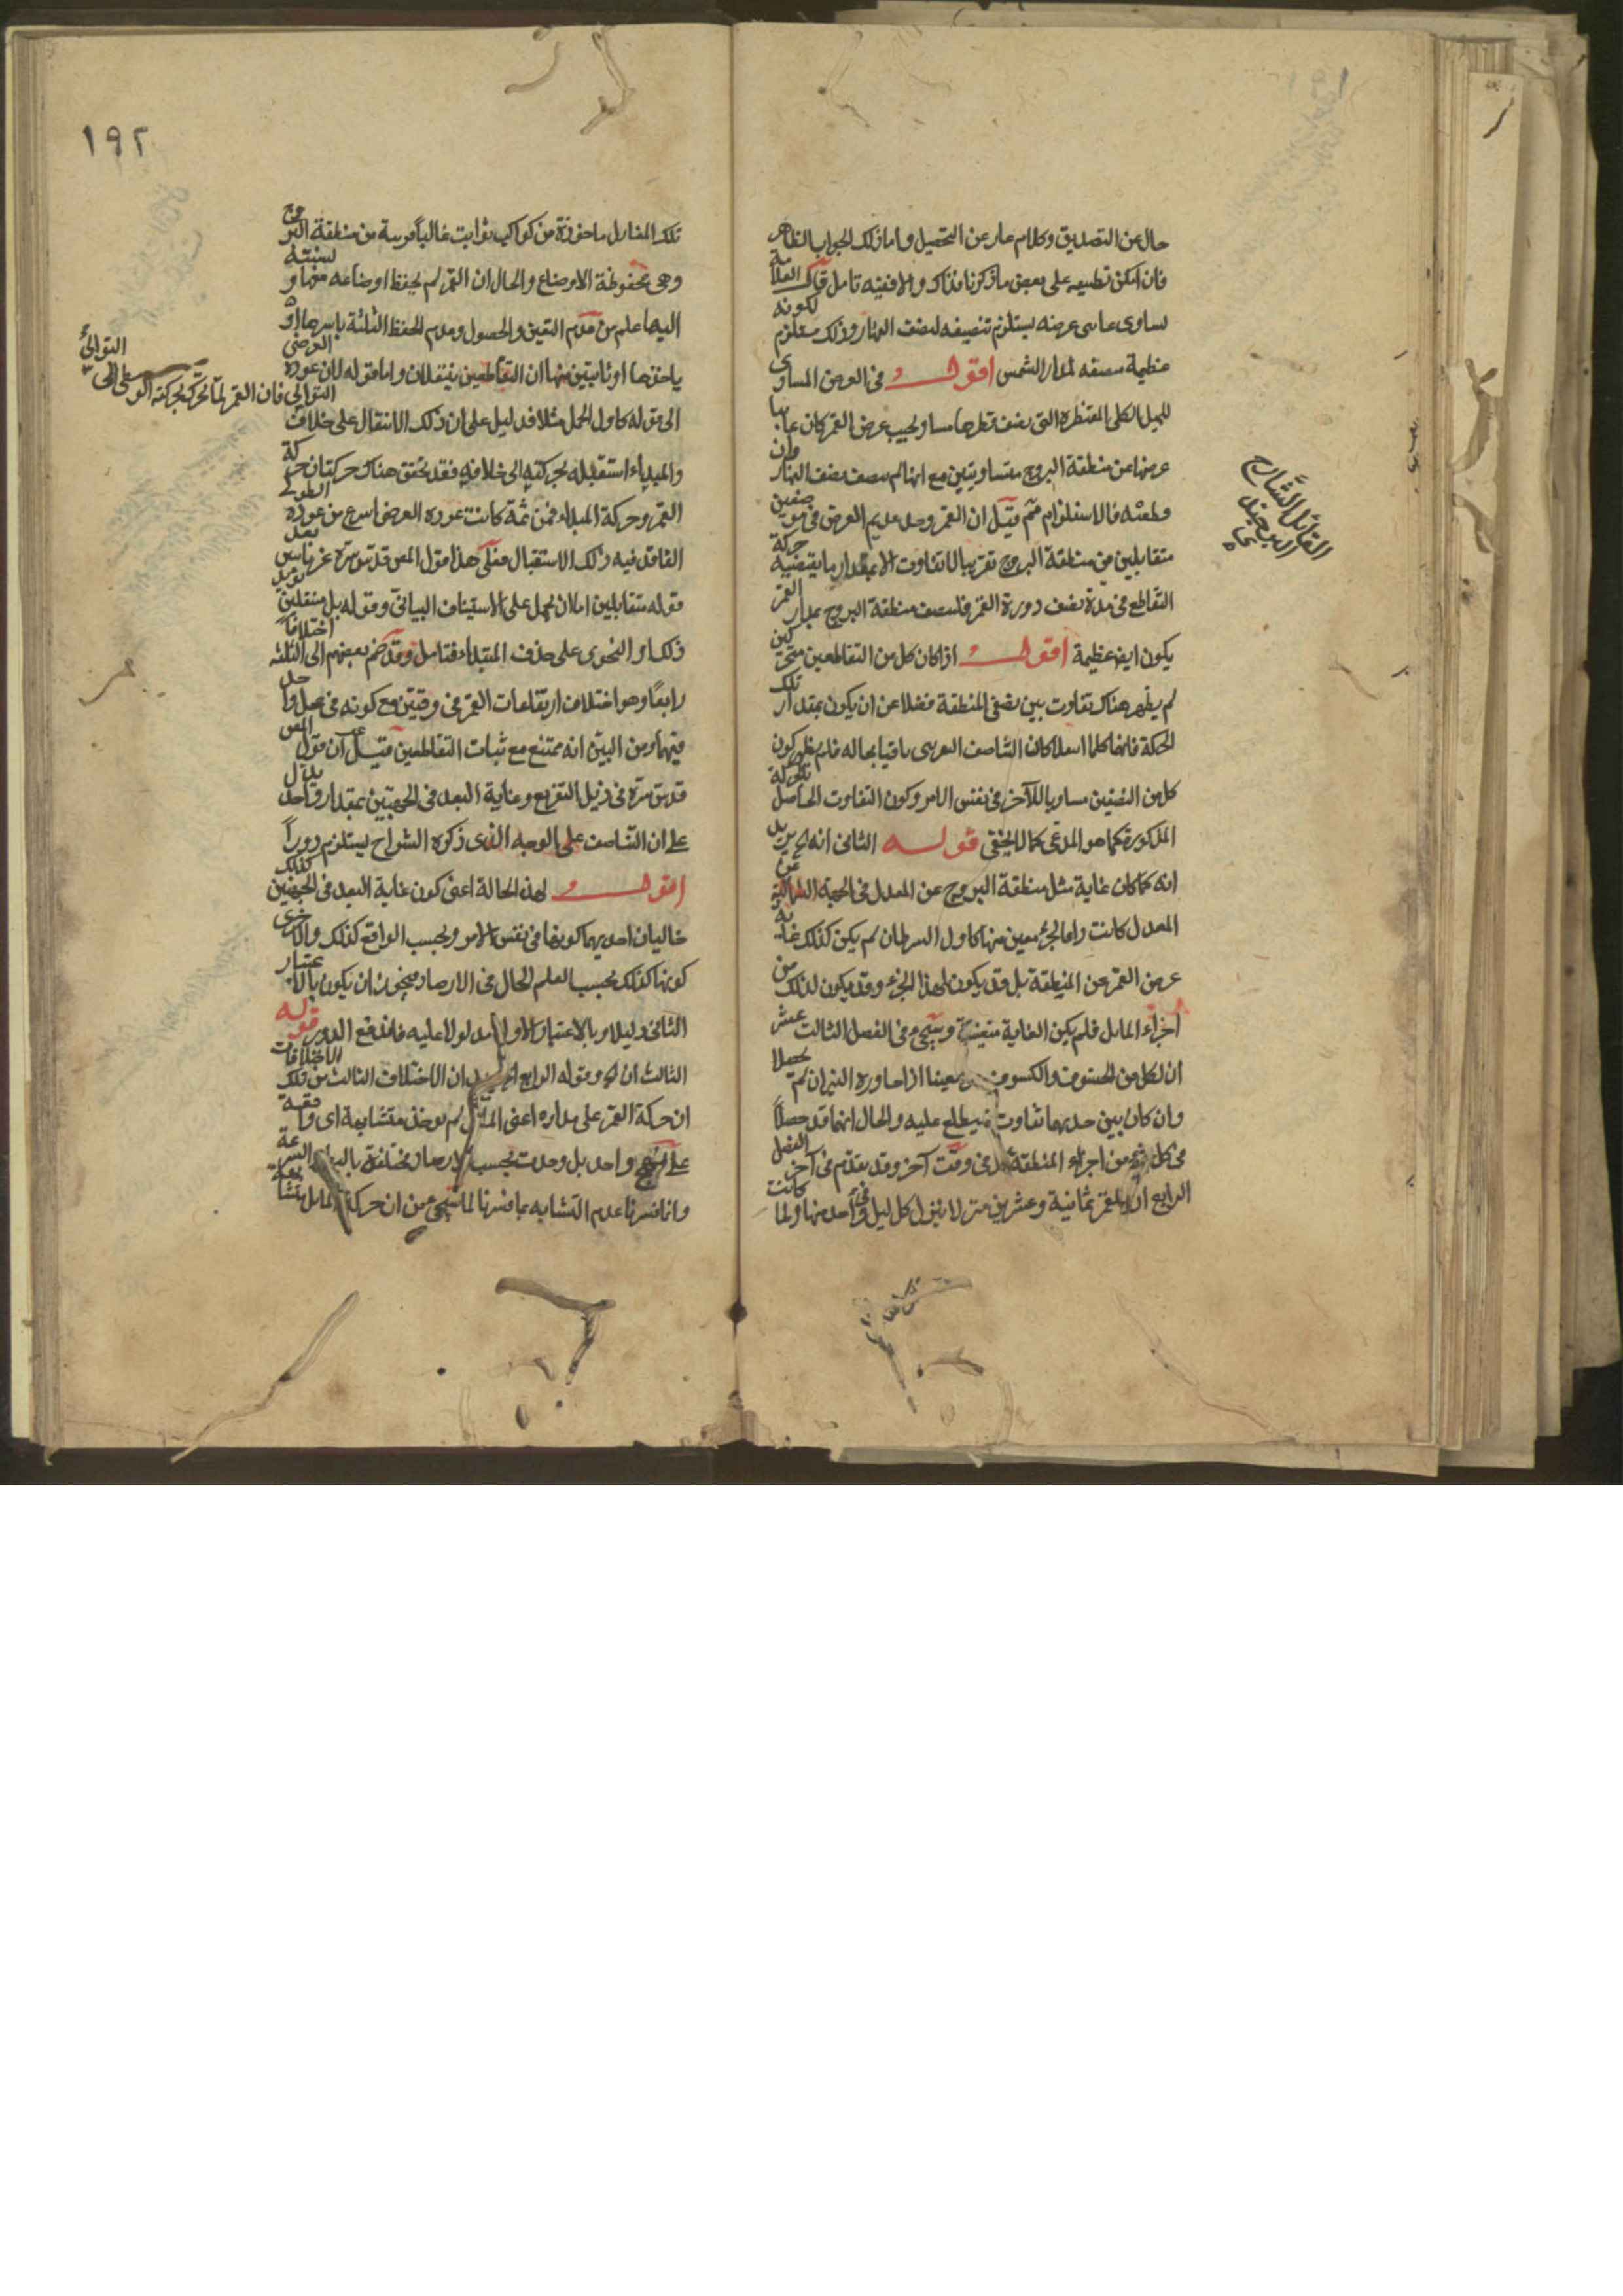 حال عن التصديق وكلام عار عن التحصيل واما ذلك الجواب الظاهر
فان امكن تطبيعه على بعض ما ذكرنا فذاك والا ففيه تامل قال العلامة
تساوى عرضه يستلزم تنصيفه لنصف النهار وذلك مستلزم لكونه
عظيمة منصفه لمدار الشمس اقول في العرض المساوى
للميل الكلى المقنطرة التى نصف قطرها مساو لجيب عرض القمر كان غايتا
عرضها عن منطقة البروج متساويتين مع انها لم تنصف نصف النهار وان
قطعته فالاستلزام ثم قيل ان القمر وجد عديم العرض فى موضعين
متقابلين من منطقة البروج تقريبا لا تفاوت الا بمقدار ما يقتضيه حركة
التقاطع فى مدة نصف دورة القمر فلنصف منطقة البروج بمدار القمر
يكون ايضا عظيمة اقول اذا كان كل من التقاطعين متحركين
لم يظهر هناك تفاوت بين نصفى المنطقة فضلا عن ان يكون بمقدار تلك
الحركة فانهما كلما انتقلا كان التناصف باقيا بحاله فلم يظهر كون
كل من النصفين مساويا للآخر فى نفس الامر وكون التفاوت الحاصل بالحركة
المذكورة كما هو المدعى كما لا يخفى قوله الثانى انه لم يريد
انه كما كان غاية ميل منطقة البروج عن المعدل فى الجهة الشمالية عن
المعدل كانت راما لجزء معين منها كاول السرطان لم يكن كذلك غاية
عرض القمر عن المنطقة بل قد يكون لهذا الجزء وقد يكون لذلك من
اجزاء المايل فلم يكن الغاية متعينة وسيجىء فى الفصل الثالث عشر
ان لكل من الخسوف والكسوف معينا اذا جاوزه النيران لم يحصلا
وان كان بين حديهما تفاوت فيطلع عليه والحال انهما قد حصلا
فى كل جزء من اجزاء المنطقة فى وقت آخر وقد تقدم فى آخر الفصل
الرابع ان للقمر ثمانية وعشرين منزلا ينزل كل ليل فى واحد منها ولما كانت
القائل الشارح
العبد
١٩٢
تلك المنازل ماخوذة من كواكب ثوابت غالبا قريبة من منطقة البروج
وهى محفوظة الاوضاع والحال ان القمر لم يحفظ اوضاعه منها ونسبته
اليها علم من عدم التعين والحصول وعدم الحفظ الثلثة باسرها او
ياخذها او ثانيتين منها ان التقاطعين ينتقلان واما قوله لان عودة العرضى
الى قوله كاول الحمل مثلا فدليل على ان ذلك الانتقال على خلاف التوالى
التوالى فان القمر لما تحرك بحركته الوسطى الى
والمبداء استقبله بحركته الى خلافه فقد تحقق هناك حركتان حركة
القمر وحركة المبداء فمن ثمة كانت عودة العرض اسرع من عودة الطول
الفاقد فيه ذلك الاستقبال فعلى هذا قول المص قدس سره
قوله متقابلين اما لان يحمل على الاستيناف البيانى وقوله بل منتقلين
ذلك او النحوى على حذف المبتداء فتامل وقد ضم بعضهم الى الثلثة اختلافا
رابعا وهو اختلاف ارتفاعات القمر فى وقتين مع كونه فى محل واحد
فيهما ومن البين انه ممتنع مع ثبات التقاطعين قيل ان قول المص
قدس سره فى ذيل التفريع وغاية البعد فى الجهتين بمقدار واحد يدل
على ان التناصف على الوجه الذى ذكره الشراح يستلزم دورا
اقول لهذه الحالة اعنى كون غاية البعد فى الجهتين كذلك
حاليان احديهما كونها فى نفس الامر وبحسب الواقع كذلك والاخرى
كونها كذلك بحسب العلم الحال فى الارصاد فيجوز ان يكون بالاعتبار
الثانى دليلا وبالاعتبار الاول مدلولا عليه فاندفع الدور قوله
الثالث ان وقوله الرابع ان الاختلاف الثالث من تلك الاختلافات
ان حركة القمر على مداره اعنى المايل لم توجد متشابهة اى واقعة
على نهج واحد بل وجدت بحسب الارصاد مختلفة بالبطء والسرعة
وانما فسرنا عدم التشابه بما فسرنا لما سيجىء من ان حركة المايل متشابهة